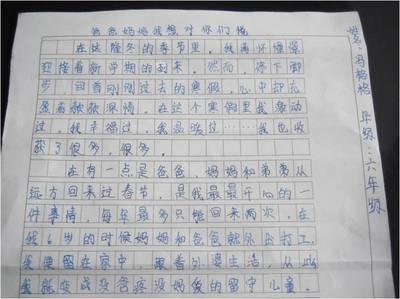 爸爸妈妈我想对你们说
在这隆冬的季节里，我满怀憧憬
迎接着新学期的到来。然而，停下脚
步，回首刚刚过去的寒假，心中却充
满着脉脉深情。在这个寒假里我感动
过，我幸福过，我品味过……我也收
获了很多，很多。
在有一点是爸爸，妈妈和弟弟从
远方回来过春节，是我最最开心的一
件事情，每年最多只能回来两次，在
我6岁的时候妈妈和爸爸就外出打工，
我便留在家中，跟着外婆生活，从此
我就变成没爸疼没妈爱的留守儿童。
姓名：冯格格 年级：六年级